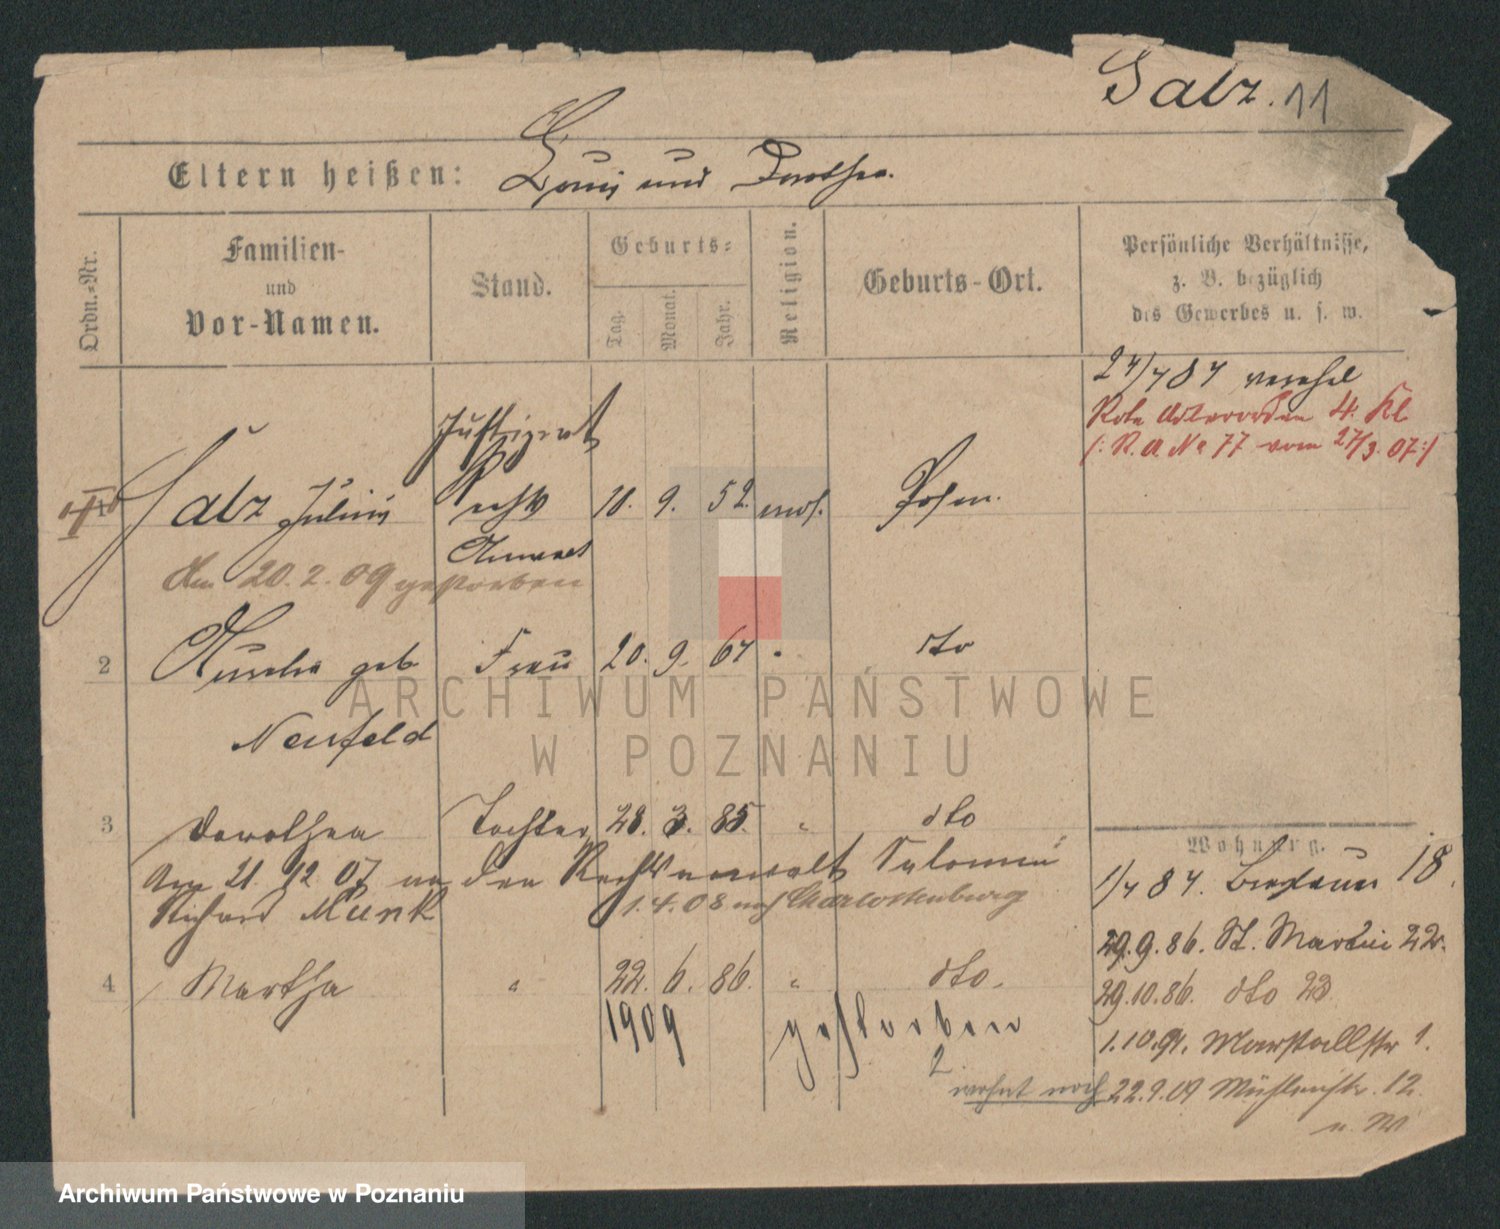 Salz. 11
Eltern heißen: Louis und Dorothea.
Ordn.-Nr.
Familien-
und
Vor-Namen.
Stand.
Geburts-
Tag. Monat. Jahr.
Religion.
Geburts-Ort.
Persönliche Verhältnisse,
z. B. bezüglich
des Gewerbes u. s. w.
verehel
Rote Adlerorden 4. Kl
(: R. A. No 77 vom 27/3. 07 :)
Justizrat
1 Salz Julius Rechts 10. 9. 52. mos. Posen.
Anwalt
Am 20. 2. 09 gestorben
2 geb Frau 20. 9. dto
Neufeld
3 Dorothea Tochter 28. 3. 85. " dto
Am 21. 12 07 an den Rechtsanwalt
Richard Munk 1. 4. 08 nach Charlottenburg
4 Martha " 22. 6. 86. " dto.
1909 gestorben
2
wohnt noch
Wohnung.
1/4 84. 18.
29. 9. 86. St. Martin 22.
29. 10. 86. dto 23
1. 10. 91. Marstallstr 1.
22. 9. 09 Mühlenstr. 12.
ARCHIWUM PAŃSTWOWE
W POZNANIU
Archiwum Państwowe w Poznaniu